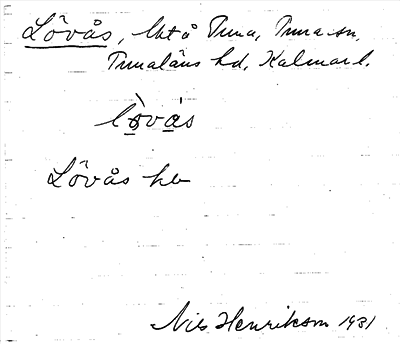 Lövås, lht å Tuna, Tuna sn,
Tunaläns hd, Kalmar l.
lòvás
Lövås hb
Nils Henrikson 1931